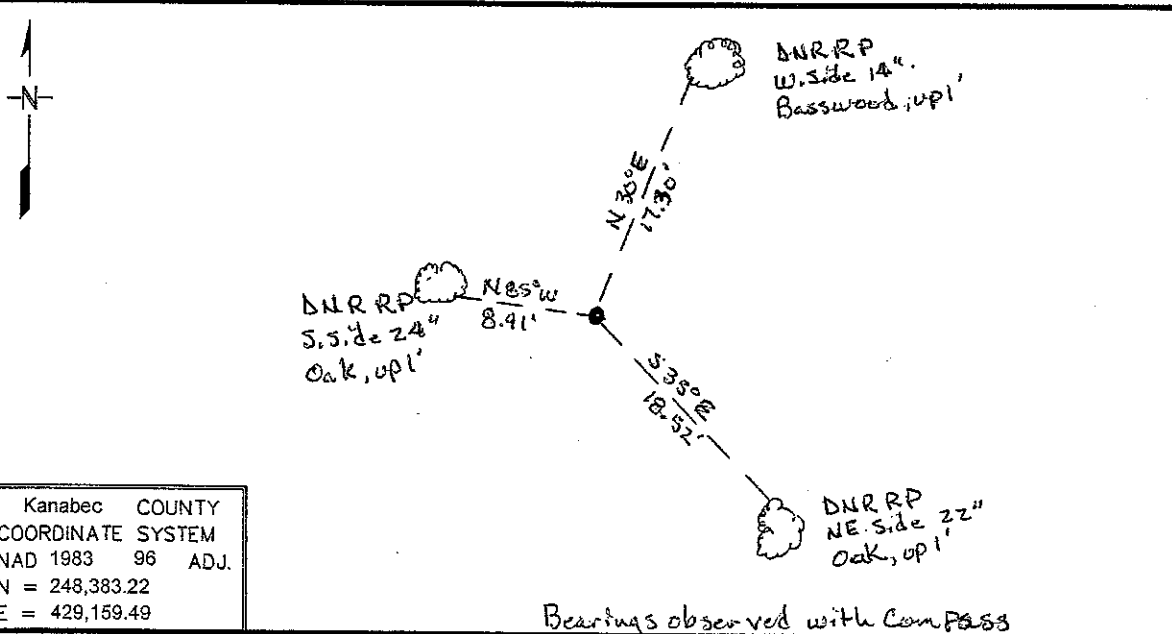 N
DNR RP
W. Side 14".
Basswood, up 1'
N 30° E
17.30'
DNR RP
S. Side 24"
Oak, up 1'
N 85° W
8.41'
S 35° E
18.52'
DNR RP
NE. Side 22"
Oak, up 1'
Kanabec COUNTY
COORDINATE SYSTEM
NAD 1983 96 ADJ.
N = 248,383.22
E = 429,159.49
Bearings observed with Compass